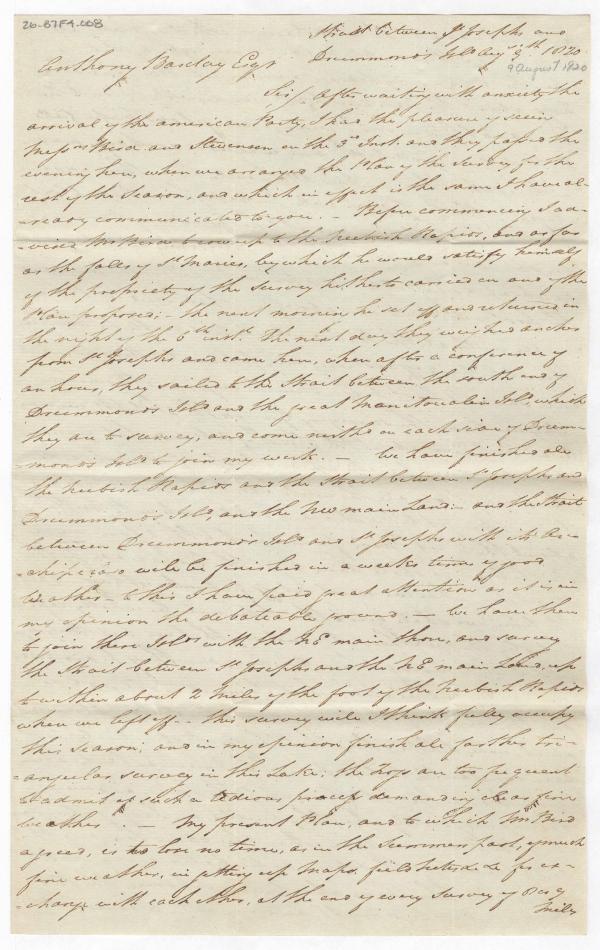 26-B7F4.008
Strait between St Josephs and
Drummonds Isld Augst 9th 1820
9 August 1820
Anthony Barclay Esqr
Sir/ after waiting with anxiety the
arrival of the american Party, I had the pleasure of seein
Messrs Bird and Stevenson on the 3d Inst. and they passed the
evening here, when we arranged the Plan of the Survey for the
rest of the Season, and which in effect is the same I have al-
-ready communicated to you. – Before commencing I ad-
-vised Mr Bird to row up to the Neebish Rapids, and as far
as the falls of St Maries, by which he would satisfy himself
of the propriety of the Survey hitherto carried on and of the
Plan proposed; – the next morning he set off and returned in
the night of the 6th inst. The next day they weighed anchor
from St Josephs and came here, when after a conference of
an hour, they sailed to the Strait between the south end of
Drummonds Isld and the great Manitoualin Isld, which
they are to survey, and come north on each side of Drum-
-monds Isld to join my work. – We have finished all
the Neebish Rapids and the Strait between St Josephs and
Drummonds Isld, and the NW main Land: – and the Strait
between Drummonds Isld and St Josephs with its Ar-
-chipelago will be finished in a weeks time of good
Weather – to this I have paid great attention as it is in
my opinion the debateable ground. – We have then
to join these Islds with the NE main shore, and survey
the Strait between St Josephs and the NE main Land, up
to within about 2 miles of the foot of the Neebish Rapids
when we left off – this survey will I think fully occupy
this season; and in my opinion finish all farther tri-
-angular survey in this Lake; the Fogs are too frequent
to admit of such a tedious process demanding clear fine
weather. – My present Plan, and to which Mr Bird
agreed, is to lose no time, as in the Summers past, of much
fine weather, in getting up Maps, field notes &c &c for ex-
-change with each other, at the end of every survey of 8 or 9
miles